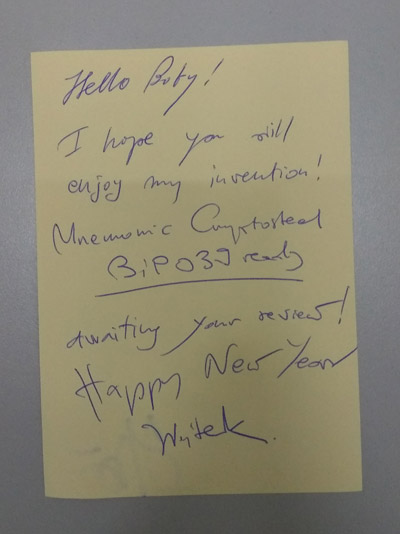 Hello Boby!
I hope you will
enjoy my invention!
Mnemonic Cryptosteel
BiP039 ready
awaiting your review!
Happy New Year
Wojtek.